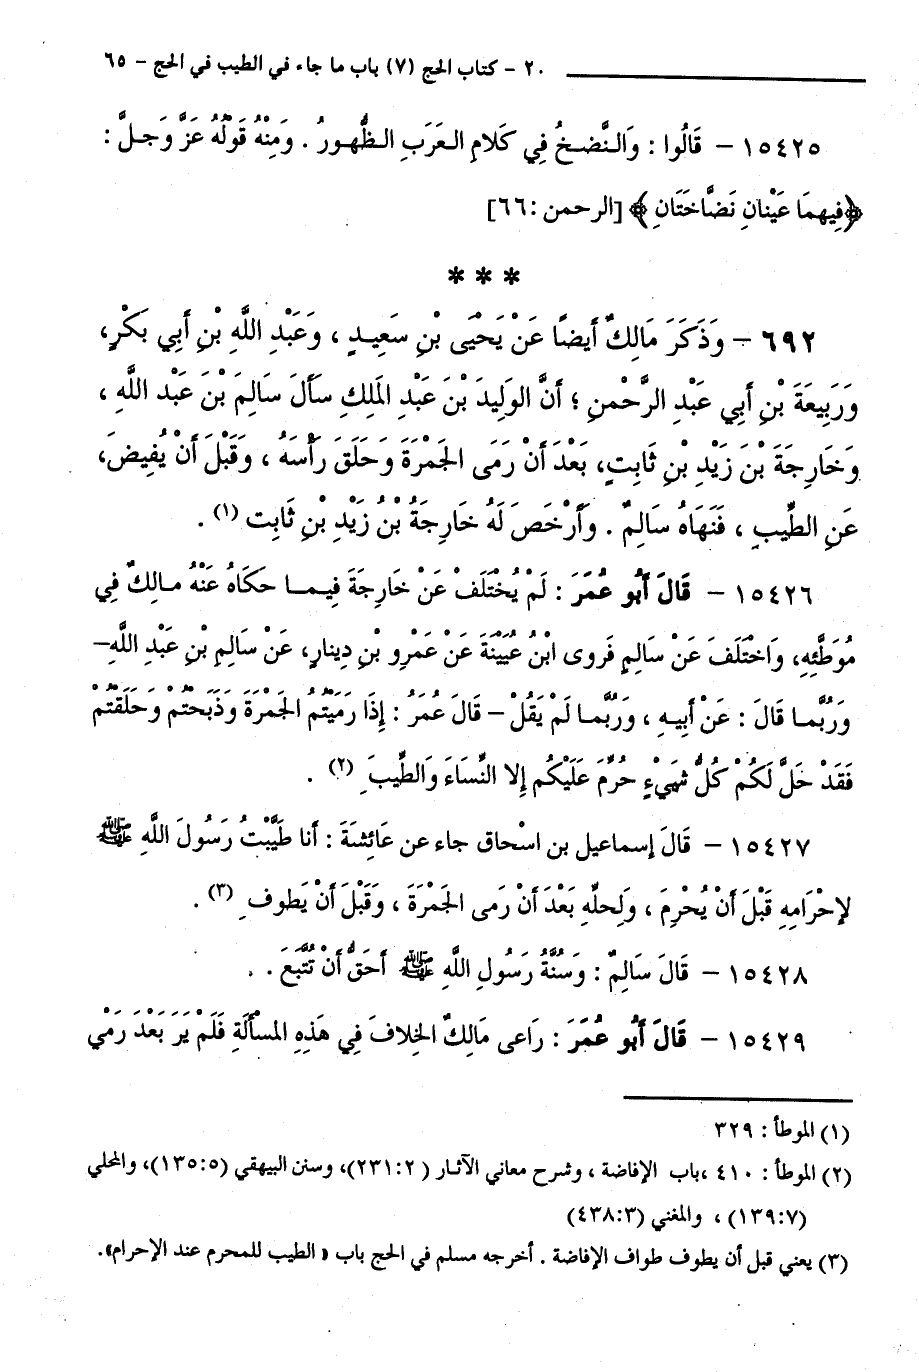 ٢٠ - كتاب الحج (٧) باب ما جاء في الطيب في الحج - ٦٥
١٥٤٢٥ - قَالُوا : وَالنَّضخُ فِي كَلامِ العَرَبِ الظُّهورُ . وَمِنْهُ قَوْلُهُ عَزَّ وَجَلَّ :
﴿فِيهِمَا عَيْنانِ نَضَّاخَتَانِ﴾ [الرحمن :٦٦]
***
٦٩٢ - وَذَكَرَ مَالِكٌ أَيضًا عَنْ يَحْيَى بْنِ سَعِيدٍ ، وَعَبْدِ اللَّهِ بْنِ أَبِي بَكْرٍ،
وَرَبِيعَةَ بْنِ أَبِي عَبْدِ الرَّحْمنِ ؛ أَنَّ الوَلِيدَ بْنَ عَبْدِ المَلِكِ سَأَلَ سَالِمَ بْنَ عَبْدِ اللَّهِ ،
وَخَارِجَةَ بْنَ زَيْدِ بْنِ ثَابِتٍ، بَعْدَ أَنْ رَمَى الجَمْرَةَ وَحَلَقَ رَأْسَهُ ، وَقَبْلَ أَنْ يُفِيضَ،
عَنِ الطِّيبِ ، فَنَهَاهُ سَالِمٌ . وَأَرْخَصَ لَهُ خَارِجَةُ بْنُ زَيْدِ بْنِ ثَابِت (١) .
١٥٤٢٦ - قَالَ أَبُو عُمَرَ : لَمْ يُخْتَلَفْ عَنْ خَارِجَةَ فِيمـا حكَاهُ عَنْهُ مالِكٌ فِي
مُوَطَّئِهِ، وَاخْتَلَفَ عَنْ سَالِمٍ فَروى ابْنُ عُيَيْنَةَ عَنْ عَمْرِو بْنِ دِينارٍ، عَنْ سَالِمِ بْنِ عَبْدِ اللَّهِ-
وَرُبَّمـا قَالَ : عَنْ أَبِيهِ ، وَرُبَّمـا لَمْ يَقُلْ - قَالَ عُمَرُ : إِذَا رَمَيْتُمُ الجَمْرَةَ وَذَبَحْتُمْ وَحَلَقْتُمْ
فَقَدْ حَلَّ لَكُمْ كُلُّ شَيْءٍ حُرِّمَ عَلَيْكُم إِلا النِّسَاءَ وَالطِّيبَ (٢) .
١٥٤٢٧ - قَالَ إِسماعيل بن اسْحاق جاء عن عَائِشَةَ : أَنا طَيَّبْتُ رَسُولَ اللَّهِ ﷺ
لإِحْرَامِهِ قَبْلَ أَنْ يُحْرِمَ ، وَلِحلِّهِ بَعْدَ أَنْ رَمَى الجَمْرَةَ ، وَقَبْلَ أَنْ يَطوف (٣) .
١٥٤٢٨ - قَالَ سَالِمٌ : وَسُنَّةُ رَسُولِ اللَّهِ ﷺ أَحَقُّ أَنْ تُتَّبَعَ .
١٥٤٢٩ - قَالَ أَبُو عُمَرَ : رَاعى مَالِكٌ الخِلافَ فِي هَذِهِ المَسْأَلَةِ فَلَمْ يَرَ بَعْدَ رَمْي
(١) الموطأ : ٣٢٩
(٢) الموطأ : ٤١٠ ،باب الإفاضة ، وشرح معاني الآثـار (٢٣١:٢)، وسنن البيهقي (١٣٥:٥)، والمحلي
(١٣٩:٧) ، والمغني (٤٣٨:٣)
(٣) يعني قبل أن يطوف طواف الإفاضة . أخرجه مسلم في الحج باب « الطيب للمحرم عند الإحرام».